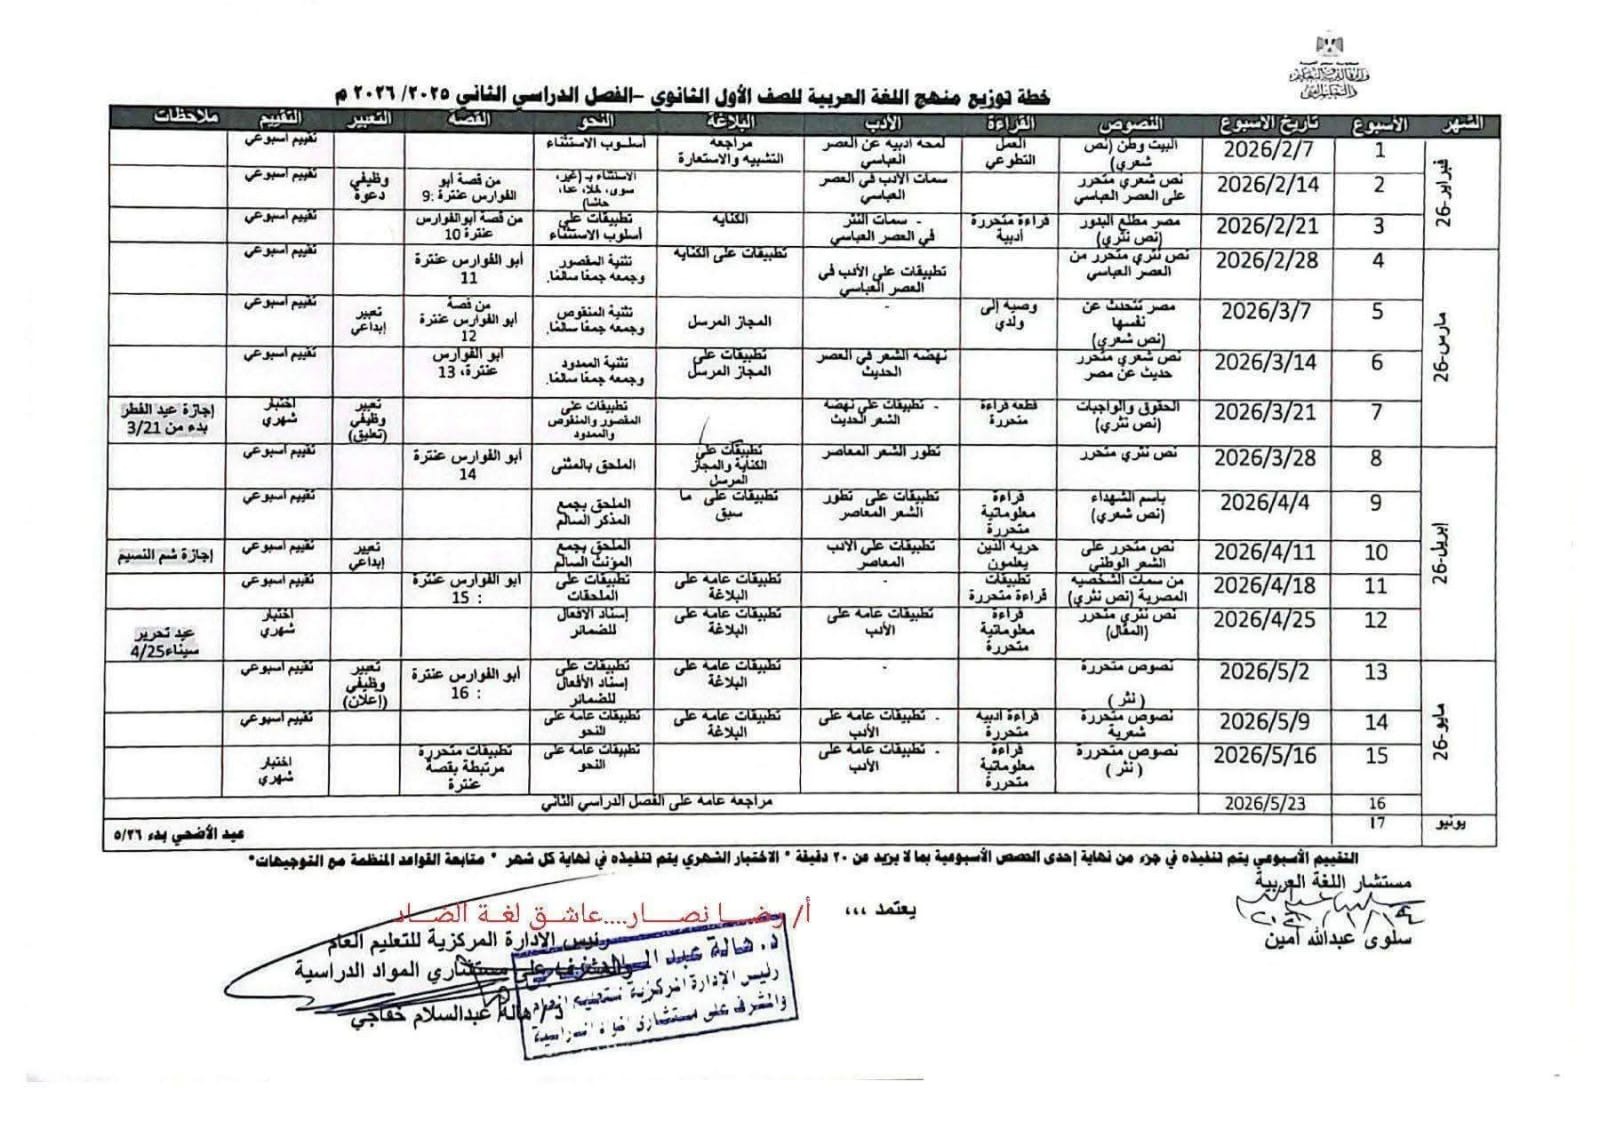 وزارة التربية والتعليم
خطة توزيع منهج اللغة العربية للصف الأول الثانوي –الفصل الدراسي الثاني ٢٠٢٥/ ٢٠٢٦ م
الشهر الأسبوع تاريخ الأسبوع النصوص القراءة الأدب البلاغة النحو القصة التعبير التقييم ملاحظات
فبراير-26
1 2026/2/7 البيت وطن (نص شعري) العمل التطوعي لمحة أدبية عن العصر العباسي مراجعة التشبيه والاستعارة أسلوب الاستثناء تقييم أسبوعي
2 2026/2/14 نص شعري متحرر على العصر العباسي سمات الأدب في العصر العباسي الاستثناء بـ (غير، سوى، خلا، عدا، حاشا) من قصة أبو الفوارس عنترة :9 وظيفي دعوة تقييم أسبوعي
3 2026/2/21 مصر مطلع البدور (نص نثري) قراءة متحررة أدبية - سمات النثر في العصر العباسي الكناية تطبيقات على أسلوب الاستثناء من قصة أبوالفوارس عنترة 10 تقييم أسبوعي
مارس-26
4 2026/2/28 نص نثري متحرر من العصر العباسي تطبيقات على الأدب في العصر العباسي تطبيقات على الكناية تثنية المقصور وجمعه جمعًا سالمًا. أبو الفوارس عنترة 11 تقييم أسبوعي
5 2026/3/7 مصر تتحدث عن نفسها (نص شعري) وصية إلى ولدي - المجاز المرسل تثنية المنقوص وجمعه جمعًا سالمًا. من قصة أبو الفوارس عنترة 12 تعبير إبداعي تقييم أسبوعي
6 2026/3/14 نص شعري متحرر حديث عن مصر نهضة الشعر في العصر الحديث تطبيقات على المجاز المرسل تثنية الممدود وجمعه جمعًا سالمًا. أبو الفوارس عنترة، 13 تقييم أسبوعي
7 2026/3/21 الحقوق والواجبات (نص نثري) قطعة قراءة متحررة - تطبيقات على نهضة الشعر الحديث تطبيقات على المقصور والمنقوص والممدود تعبير وظيفي (تعليق) اختبار شهري إجازة عيد الفطر بدء من 3/21
ابريل-26
8 2026/3/28 نص نثري متحرر تطور الشعر المعاصر تطبيقات على الكناية والمجاز المرسل الملحق بالمثنى أبو الفوارس عنترة 14 تقييم أسبوعي
9 2026/4/4 باسم الشهداء (نص شعري) قراءة معلوماتية متحررة تطبيقات على تطور الشعر المعاصر تطبيقات على ما سبق الملحق بجمع المذكر السالم تقييم أسبوعي
10 2026/4/11 نص متحرر على الشعر الوطني حرية الذين يعلمون تطبيقات على الأدب المعاصر الملحق بجمع المؤنث السالم تعبير إبداعي تقييم أسبوعي إجازة شم النسيم
11 2026/4/18 من سمات الشخصية المصرية (نص نثري) تطبيقات قراءة متحررة - تطبيقات عامة على البلاغة تطبيقات على الملحقات أبو الفوارس عنترة : 15 تقييم أسبوعي
12 2026/4/25 نص نثري متحرر (المقال) قراءة معلوماتية متحررة تطبيقات عامة على الأدب تطبيقات عامة على البلاغة إسناد الأفعال للضمائر اختبار شهري عيد تحرير سيناء4/25
مايو-26
13 2026/5/2 نصوص متحررة ( نثر ) - تطبيقات عامة على البلاغة تطبيقات على إسناد الأفعال للضمائر أبو الفوارس عنترة : 16 تعبير وظيفي (إعلان) تقييم أسبوعي
14 2026/5/9 نصوص متحررة شعرية قراءة أدبية متحررة - تطبيقات عامة على الأدب تطبيقات عامة على البلاغة تطبيقات عامة على النحو تقييم أسبوعي
15 2026/5/16 نصوص متحررة ( نثر ) قراءة معلوماتية متحررة - تطبيقات عامة على الأدب تطبيقات عامة على النحو تطبيقات متحررة مرتبطة بقصة عنترة اختبار شهري
16 2026/5/23 مراجعة عامة على الفصل الدراسي الثاني
يونيو 17 عيد الأضحى بدء ٥/٢٦
التقييم الأسبوعي يتم تنفيذه في جزء من نهاية إحدى الحصص الأسبوعية بما لا يزيد عن ٢٠ دقيقة * الاختبار الشهري يتم تنفيذه في نهاية كل شهر * متابعة القواعد المنظمة مع التوجيهات*
مستشار اللغة العربية
سلوى عبدالله أمين
يعتمد ،،،
أ/ رضــا نصــار....عاشـق لغـة الضـاد
رئيس الإدارة المركزية للتعليم العام
والمشرف على مستشاري المواد الدراسية
د / هالة عبدالسلام خفاجي
د. هالة عبد السلام
رئيس الإدارة المركزية للتعليم العام
والمشرف على مستشارى المواد الدراسية